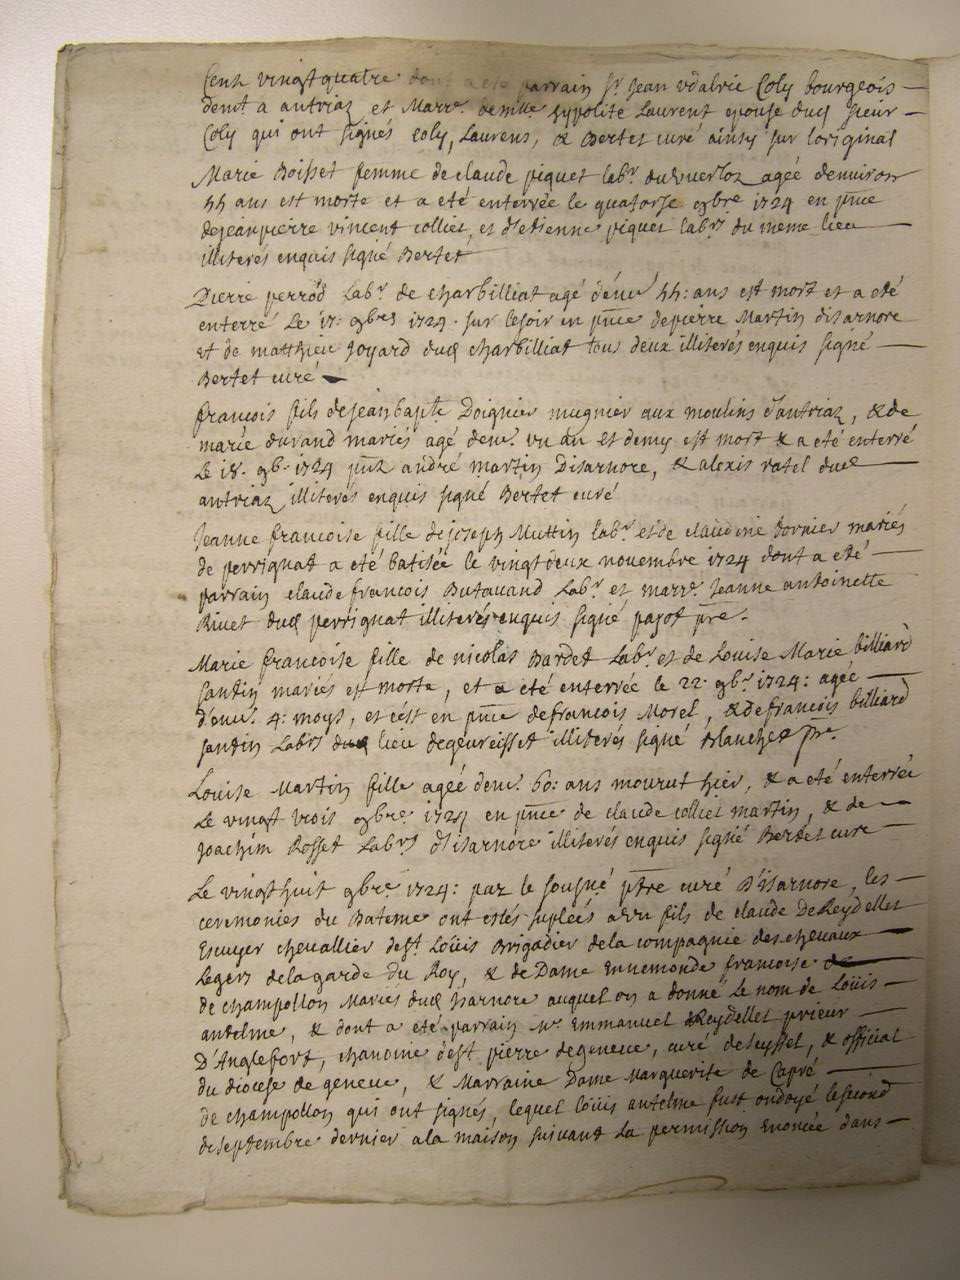 Cent vingt quatre dont a eté parrain Sr. Jean udalric Coly bourgeois
demt a antriaz et Marre. demlle hypolite Laurent epouse dud sieur
Coly qui ont signés Coly, Laurens, & Bertet curé ainsy sur loriginal
Marie Boisset femme de claude piquet labr. du agéé denuiron
44 ans est morte et a eté enterrée le quatorse 9bre 1724 en pnce
dejeanpierre vincent colliet, et d'etienne piquet labrs du meme lieu
illiterés enquis signé Bertet
Pierre perrod Labr. de charbilliat agé d'enu. 44: ans est mort et a eté
enterré Le 17: 9bre 1724 sur lesoir en pnce depierre Martin disarnore
et de matthieu Joyard dud charbilliat tous deux illiterés enquis signé
Bertet curé
francois fils dejean bapte Doignier mugnier aux moulins d'antriaz, & de
marie durand mariés agé denu. vn an et demy est mort & a eté enterré
Le 18. 9br. 1724 pnts andré martin Disarnore, & alexis ratel dud
antriaz illiterés enquis signé Bertet curé
Jeanne francoise fille dejoseph Muttin labr. et de claudine dornier mariés
de perrignat a eté batisée le vingt deux nouembre 1724 dont a eté
parrain claude francois Butauand Labr. et marre. Jeanne antoinette
Riuet dud perrignat illiterés enquis signé pajot pre.
Marie francoise fille de nicolas Bardet Labr. et de Louise Marie billiard
santin mariés est morte, et a eté enterrée le 22. 9br. 1724: agéé
d'enu. 4: moys, et cést en pnce defrancois Morel, & defrancois billiard
santin Labrs dud lieu degeureisset illiterés signé Blanchet pre.
Louise Martin fille agéé denu. 60: ans mourut hier, & a eté enterrée
Le vingt trois 9bre. 1724 en pnce de claude colliet martin, & de
Joachim Rosset Labrs d'isarnore illiterés enquis signé Bertet cure
Le vingthuit 9bre. 1724: par le sousné ptre curé D'isarnore, les
ceremonies du Bateme ont estés suplées a vn fils de claude DeReydellet
Escuyer cheuallier de st. Loüis Brigadier de la compagnie des cheuaux
Legers de la garde du Roy, & de Dame Ennemonde francoise de
de champollon Mariés dud Isarnore auquel on a donné Le nom de Loüis
antelme, & dont a eté parrain Mr. Emmanuel deReydellet prieur
D'Anglefort, chanoine d'est pierre degeneue, curé deseyssel, & official
du diocese de geneue, & Marraine Dame Marguerite de Capré
de champollon qui ont signés, lequel loüis antelme fust ondoyé lesecond
deseptembre dernier a la maison suivant La permission Enoncée dans